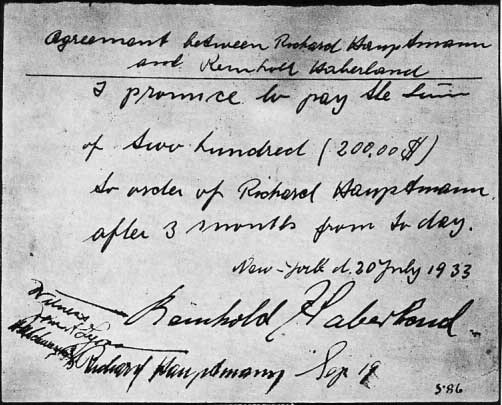 Agreement between Richard Hauptmann
and Reinhold Haberland
I promice to pay the Sum
of two hundred (200,00 $)
to order of Richard Hauptmann.
after 3 months from to day.
New-York d. 20 July 1933
Reinhold Haberland.
Richard Hauptmann Sep 19
S-86